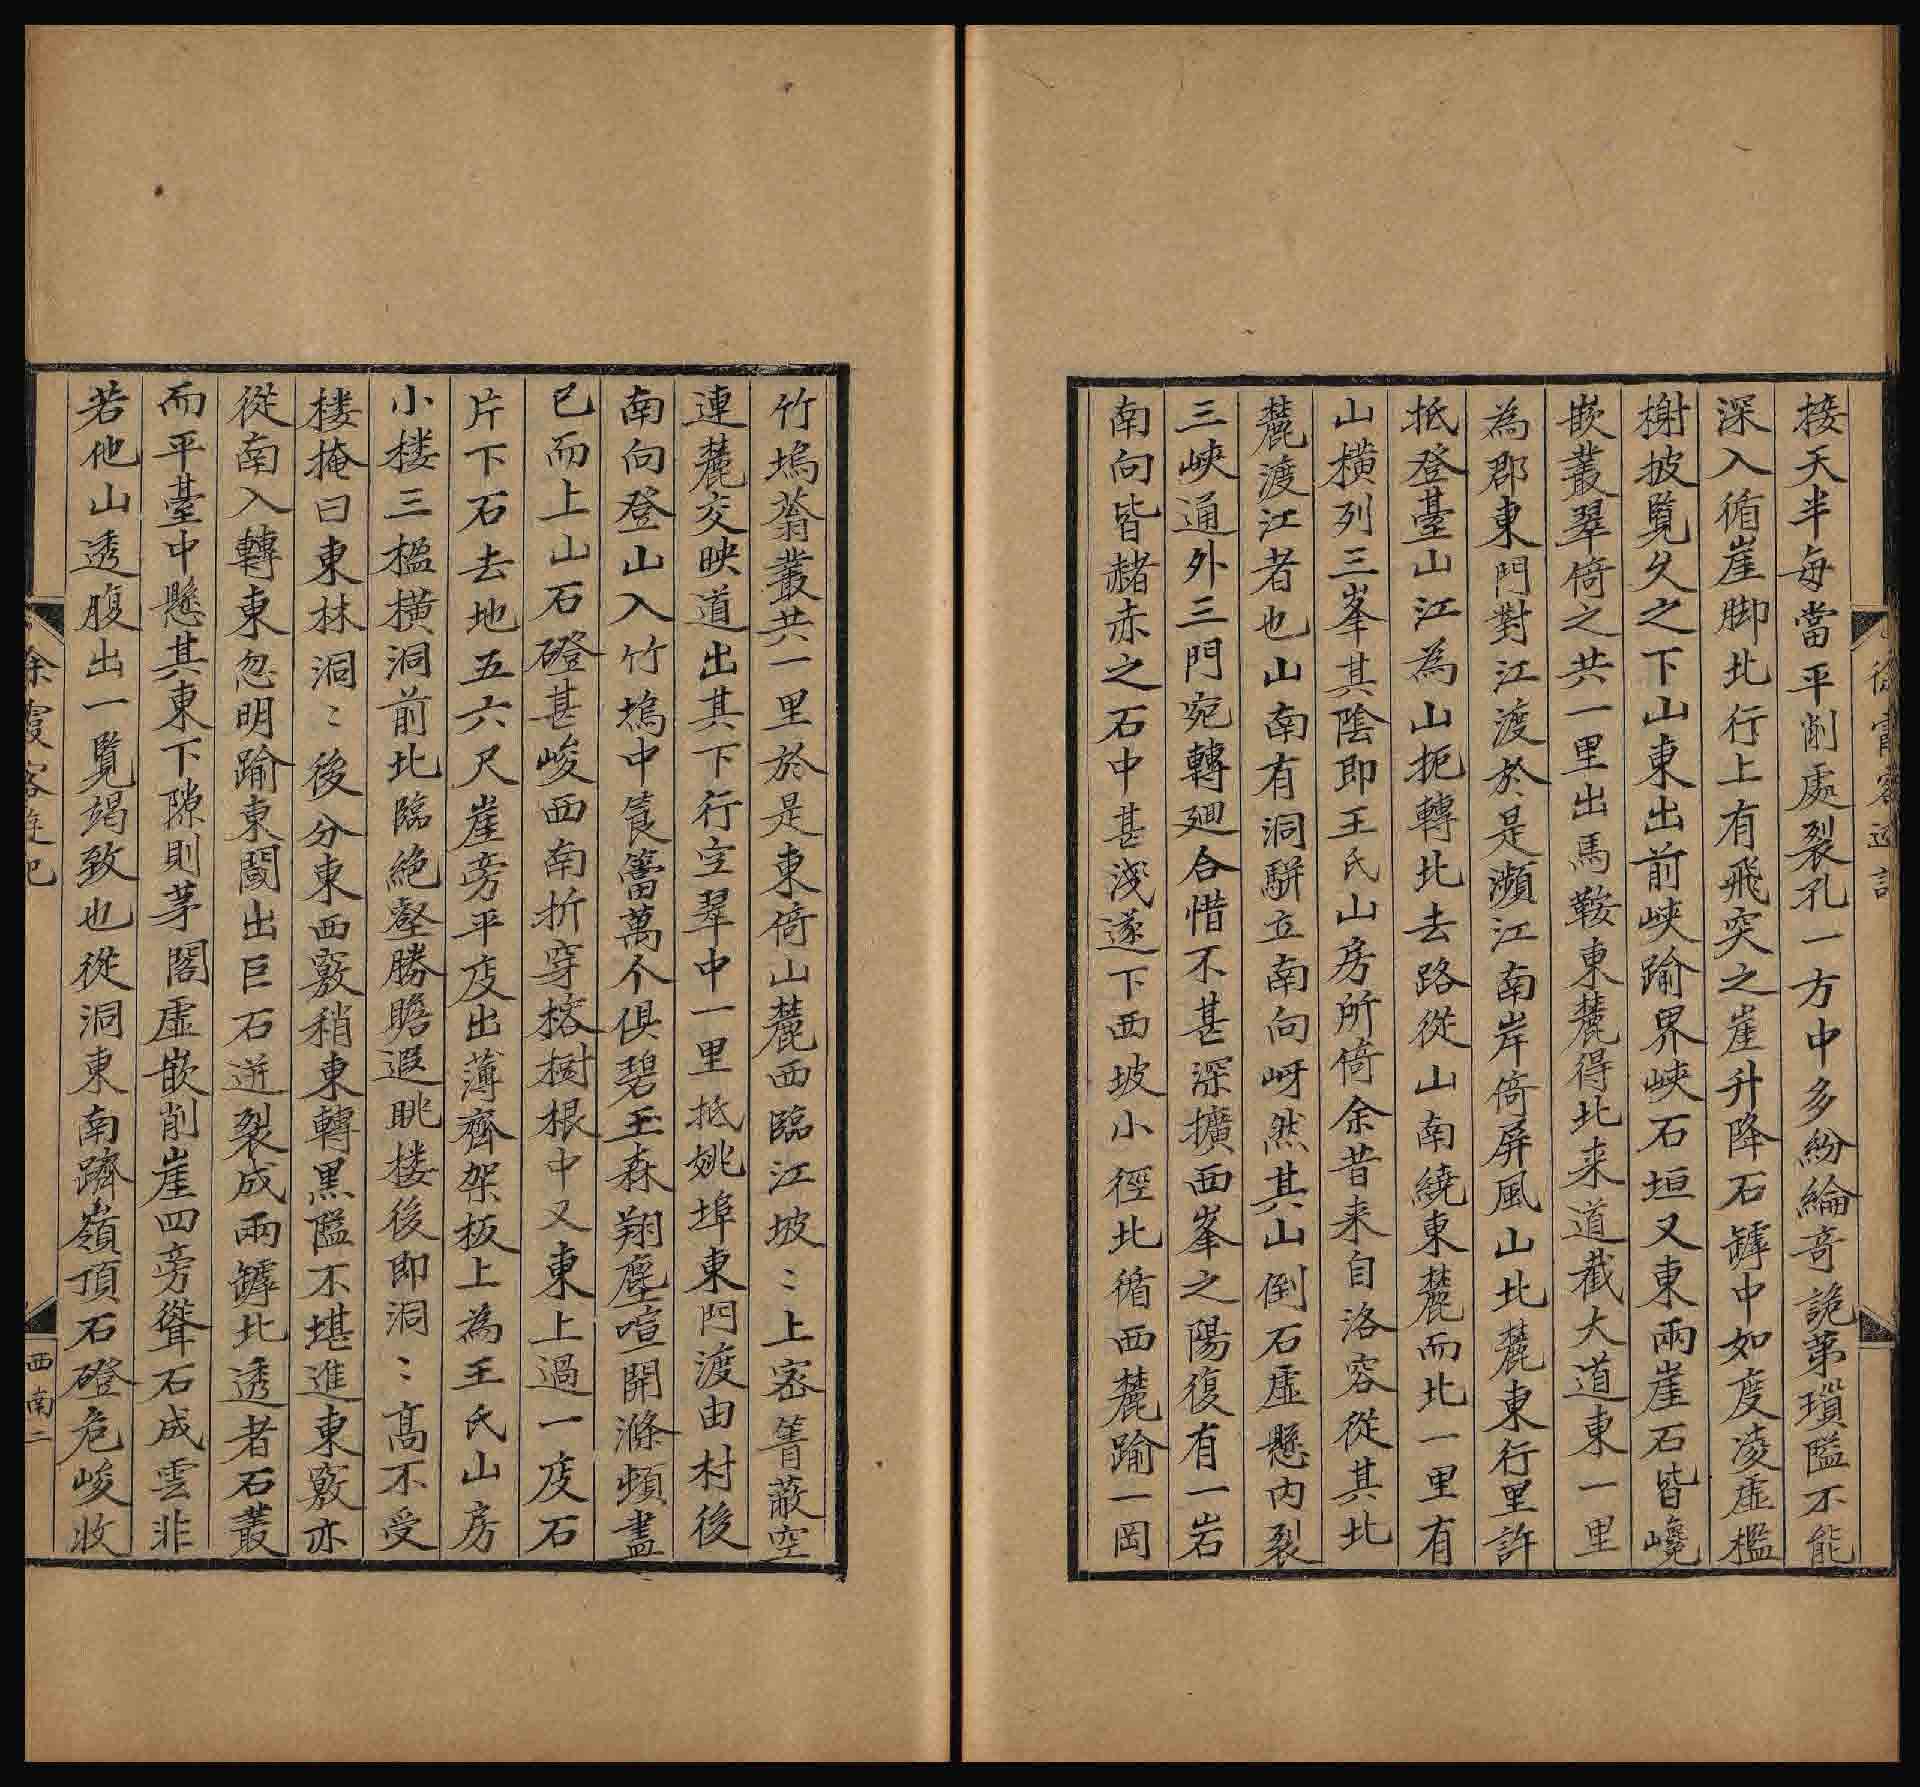 接天半每當平削處裂孔一方中多紛綸奇詭第瑣隘不能
深入循崖脚北行上有飛突之崖升降石罅中如度凌虛檻
榭披覽久之下山東出前峽踰界峽石垣又東兩崖石皆巉
嵌叢翠倚之共一里出馬鞍東麓得北来道截大道東一里
為郡東門對江渡於是瀕江南岸倚屏風山北麓東行里許
抵登臺山江為山扼轉北去路從山南繞東麓而北一里有
山橫列三峯其陰即王氏山房所倚余昔来自洛容從其北
麓渡江者也山南有洞駢立南向岈然其山倒石虛懸內裂
三峽通外三門宛轉廻合惜不甚深擴西峯之陽復有一岩
南向皆赭赤之石中甚淺遂下西坡小徑北循西麓踰一岡
竹塢蓊叢共一里於是東倚山麓西臨江坡〻上密箐蔽空
連麓交映道出其下行空翠中一里抵姚埠東門渡由村後
南向登山入竹塢中篔簹萬个俱碧玉森翔塵喧開滌頓盡
已而上山石磴甚峻西南折穿榕樹根中又東上過一庋石
片下石去地五六尺崖旁平庋出薄齊架板上為王氏山房
小楼三楹橫洞前北臨絶壑勝瞻遐眺楼後即洞〻高不受
楼掩曰東林洞〻後分東西竅稍東轉黑隘不堪進東竅亦
從南入轉東忽明踰東閾出巨石迸裂成兩罅北透者石叢
而平臺中懸其東下隙則茅閣虛嵌削崖四旁聳石成雲非
若他山透腹出一覽竭致也從洞東南躋嶺頂石磴危峻收
西南二